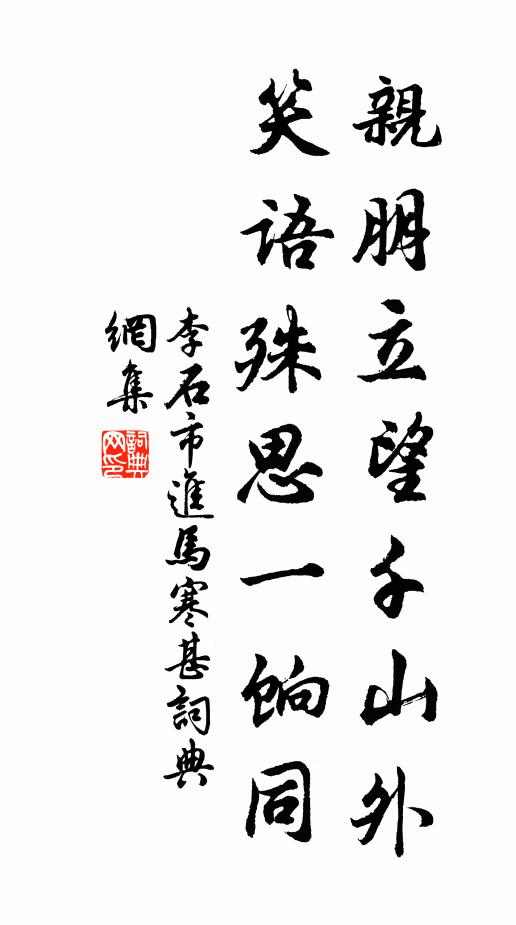 親朋立望千山外
笑語殊思一餉同
李石市進馬寒甚詞典
網集
詞典網印